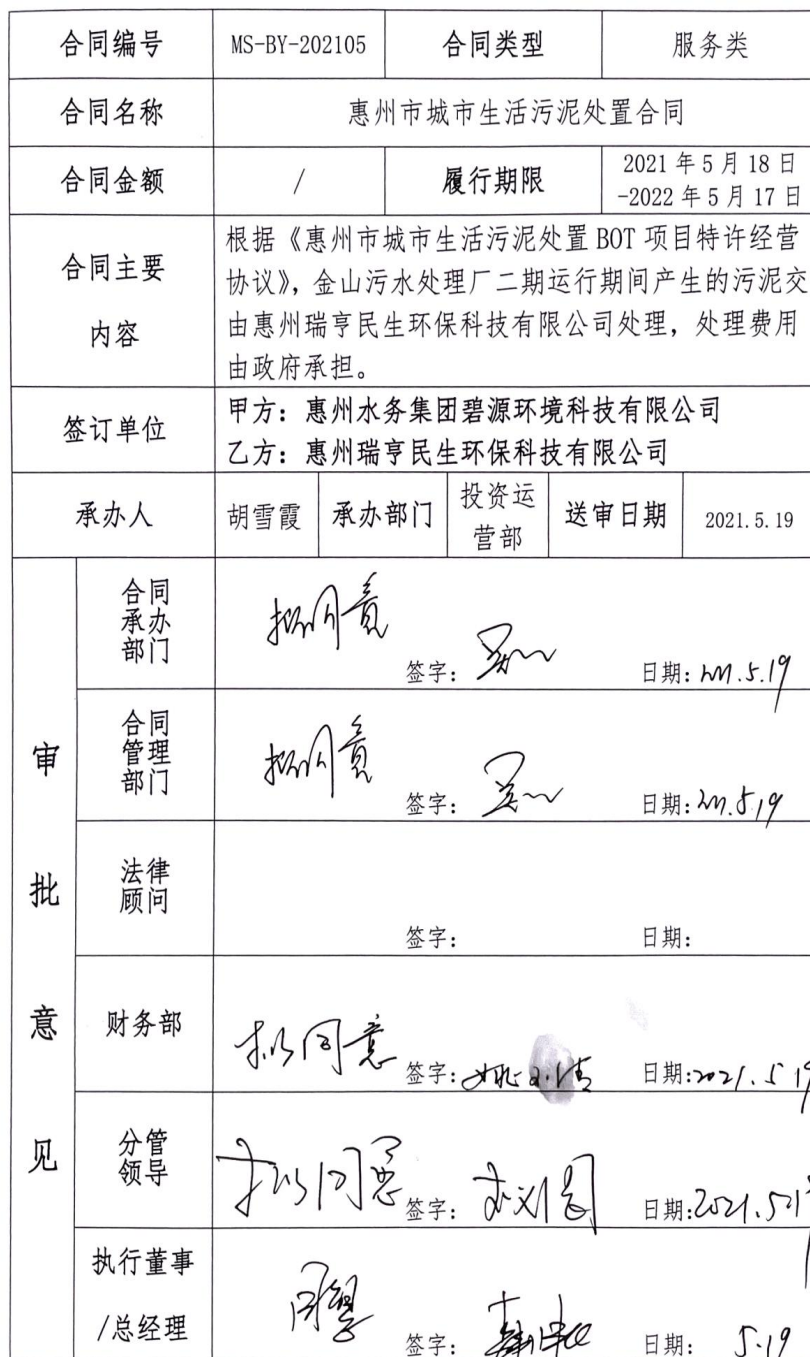 合同编号 MS-BY-202105 合同类型 服务类
合同名称 惠州市城市生活污泥处置合同
合同金额 / 履行期限 2021年5月18日
-2022年5月17日
合同主要
内容
根据《惠州市城市生活污泥处置BOT项目特许经营
协议》，金山污水处理厂二期运行期间产生的污泥交
由惠州瑞亨民生环保科技有限公司处理，处理费用
由政府承担。
签订单位
甲方：惠州水务集团碧源环境科技有限公司
乙方：惠州瑞亨民生环保科技有限公司
承办人 胡雪霞 承办部门 投资运
营部 送审日期 2021.5.19
审批意见
合同
承办
部门
拟同意
签字： 日期：2021.5.19
合同
管理
部门
拟同意
签字： 日期：2021.5.19
法律
顾问
签字： 日期：
财务部
拟同意
签字： 日期：2021.5.19
分管
领导
拟同意
签字： 日期：2021.5.19
执行董事
/总经理
同意
签字： 日期： 5.19